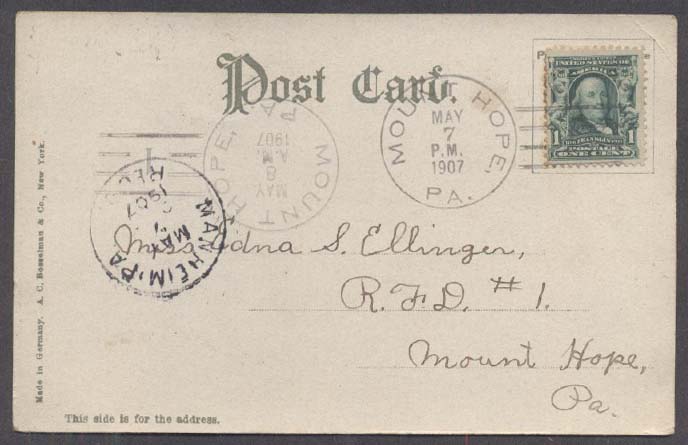 Post Card.
MOUNT HOPE,
MAY
7
P.M.
1907
PA.
UNITED STATES OF
AMERICA
1 1
FRANKLIN
POSTAGE
ONE CENT
MOUNT HOPE, PA
MAY
8
A.M.
1907
MANHEIM, PA
MAY
1907
REC
Miss Edna S. Ellinger,
R.F.D. #1.
Mount Hope,
Pa.
Made in Germany. A. C. Bosselman & Co., New York.
This side is for the address.